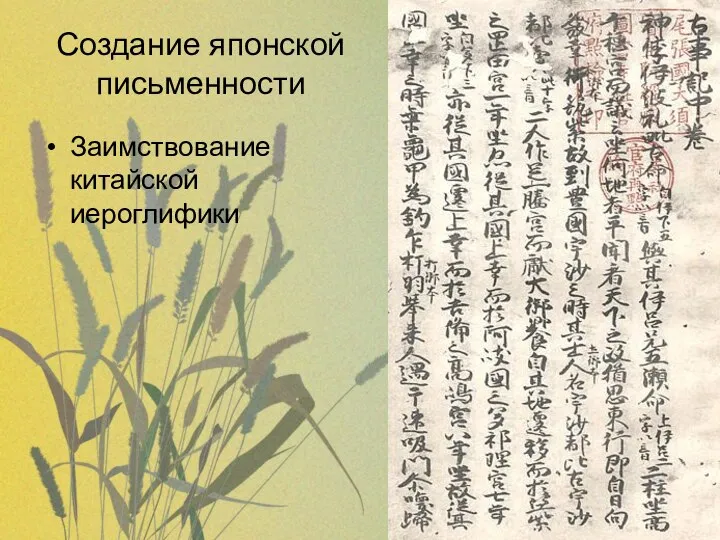 Создание японской
письменности
• Заимствование
китайской
иероглифики
古事記中卷
神倭伊波礼毗古命自伊下五字以音與其伊呂兄五瀬命上伊呂二字以音二柱坐高
千穂宮而議云坐何地者平聞看天下之政猶思東行即自日向
發幸御筑紫故到豊國宇沙之時其土人名宇沙都比古宇沙
都比賣此十字以音二人作足一騰宮而獻大御饗自其地遷移而於筑紫
之岡田宮一年坐亦從其國上幸而於阿岐國之多祁理宮七年
坐亦從其國遷上幸而於吉備之高嶋宮八年坐故從其
國上幸之時乗龜甲為釣乍打羽擧来人遇于速吸門尒喚歸
尾張國大須